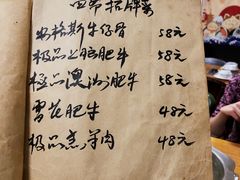 招牌菜
安格斯牛仔骨 58元
极品上脑肥牛 58元
极品澳洲肥牛 58元
雪花肥牛 48元
极品羔羊肉 48元